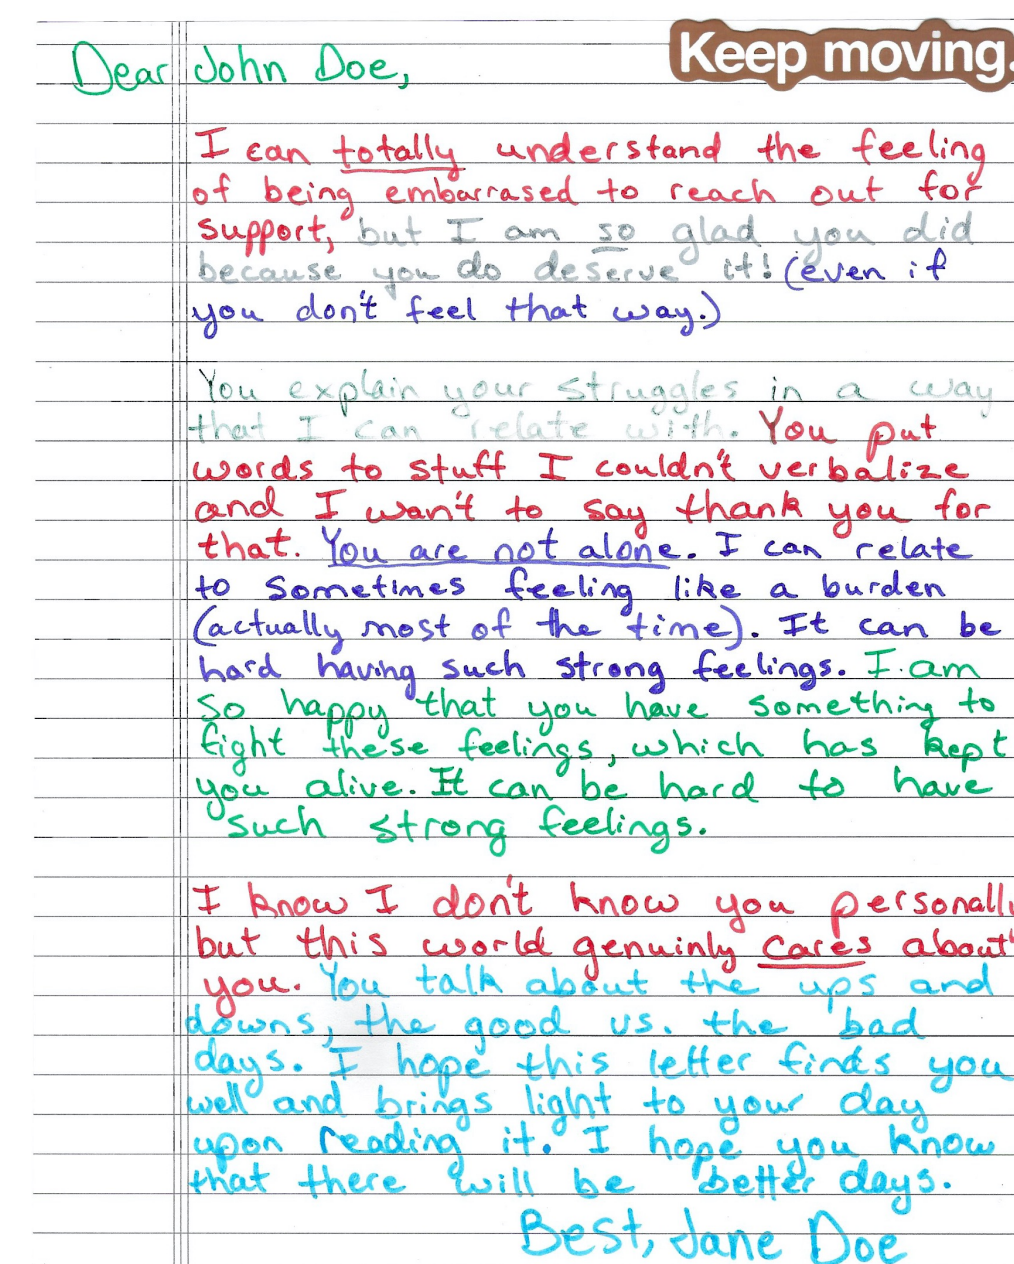 Keep moving.
Dear John Doe,
I can totally understand the feeling
of being embarrased to reach out for
support, but I am so glad you did
because you do deserve it! (even if
you don't feel that way.)
You explain your struggles in a way
that I can relate with. You put
words to stuff I couldn't verbalize
and I wan't to say thank you for
that. You are not alone. I can relate
to sometimes feeling like a burden
(actually most of the time). It can be
hard having such strong feelings. I am
so happy that you have something to
fight these feelings, which has kept
you alive. It can be hard to have
such strong feelings.
I know I don't know you personally
but this world genuinly cares about
you. You talk about the ups and
downs, the good vs. the bad
days. I hope this letter finds you
well and brings light to your day
upon reading it. I hope you know
that there will be better days.
Best, Jane Doe